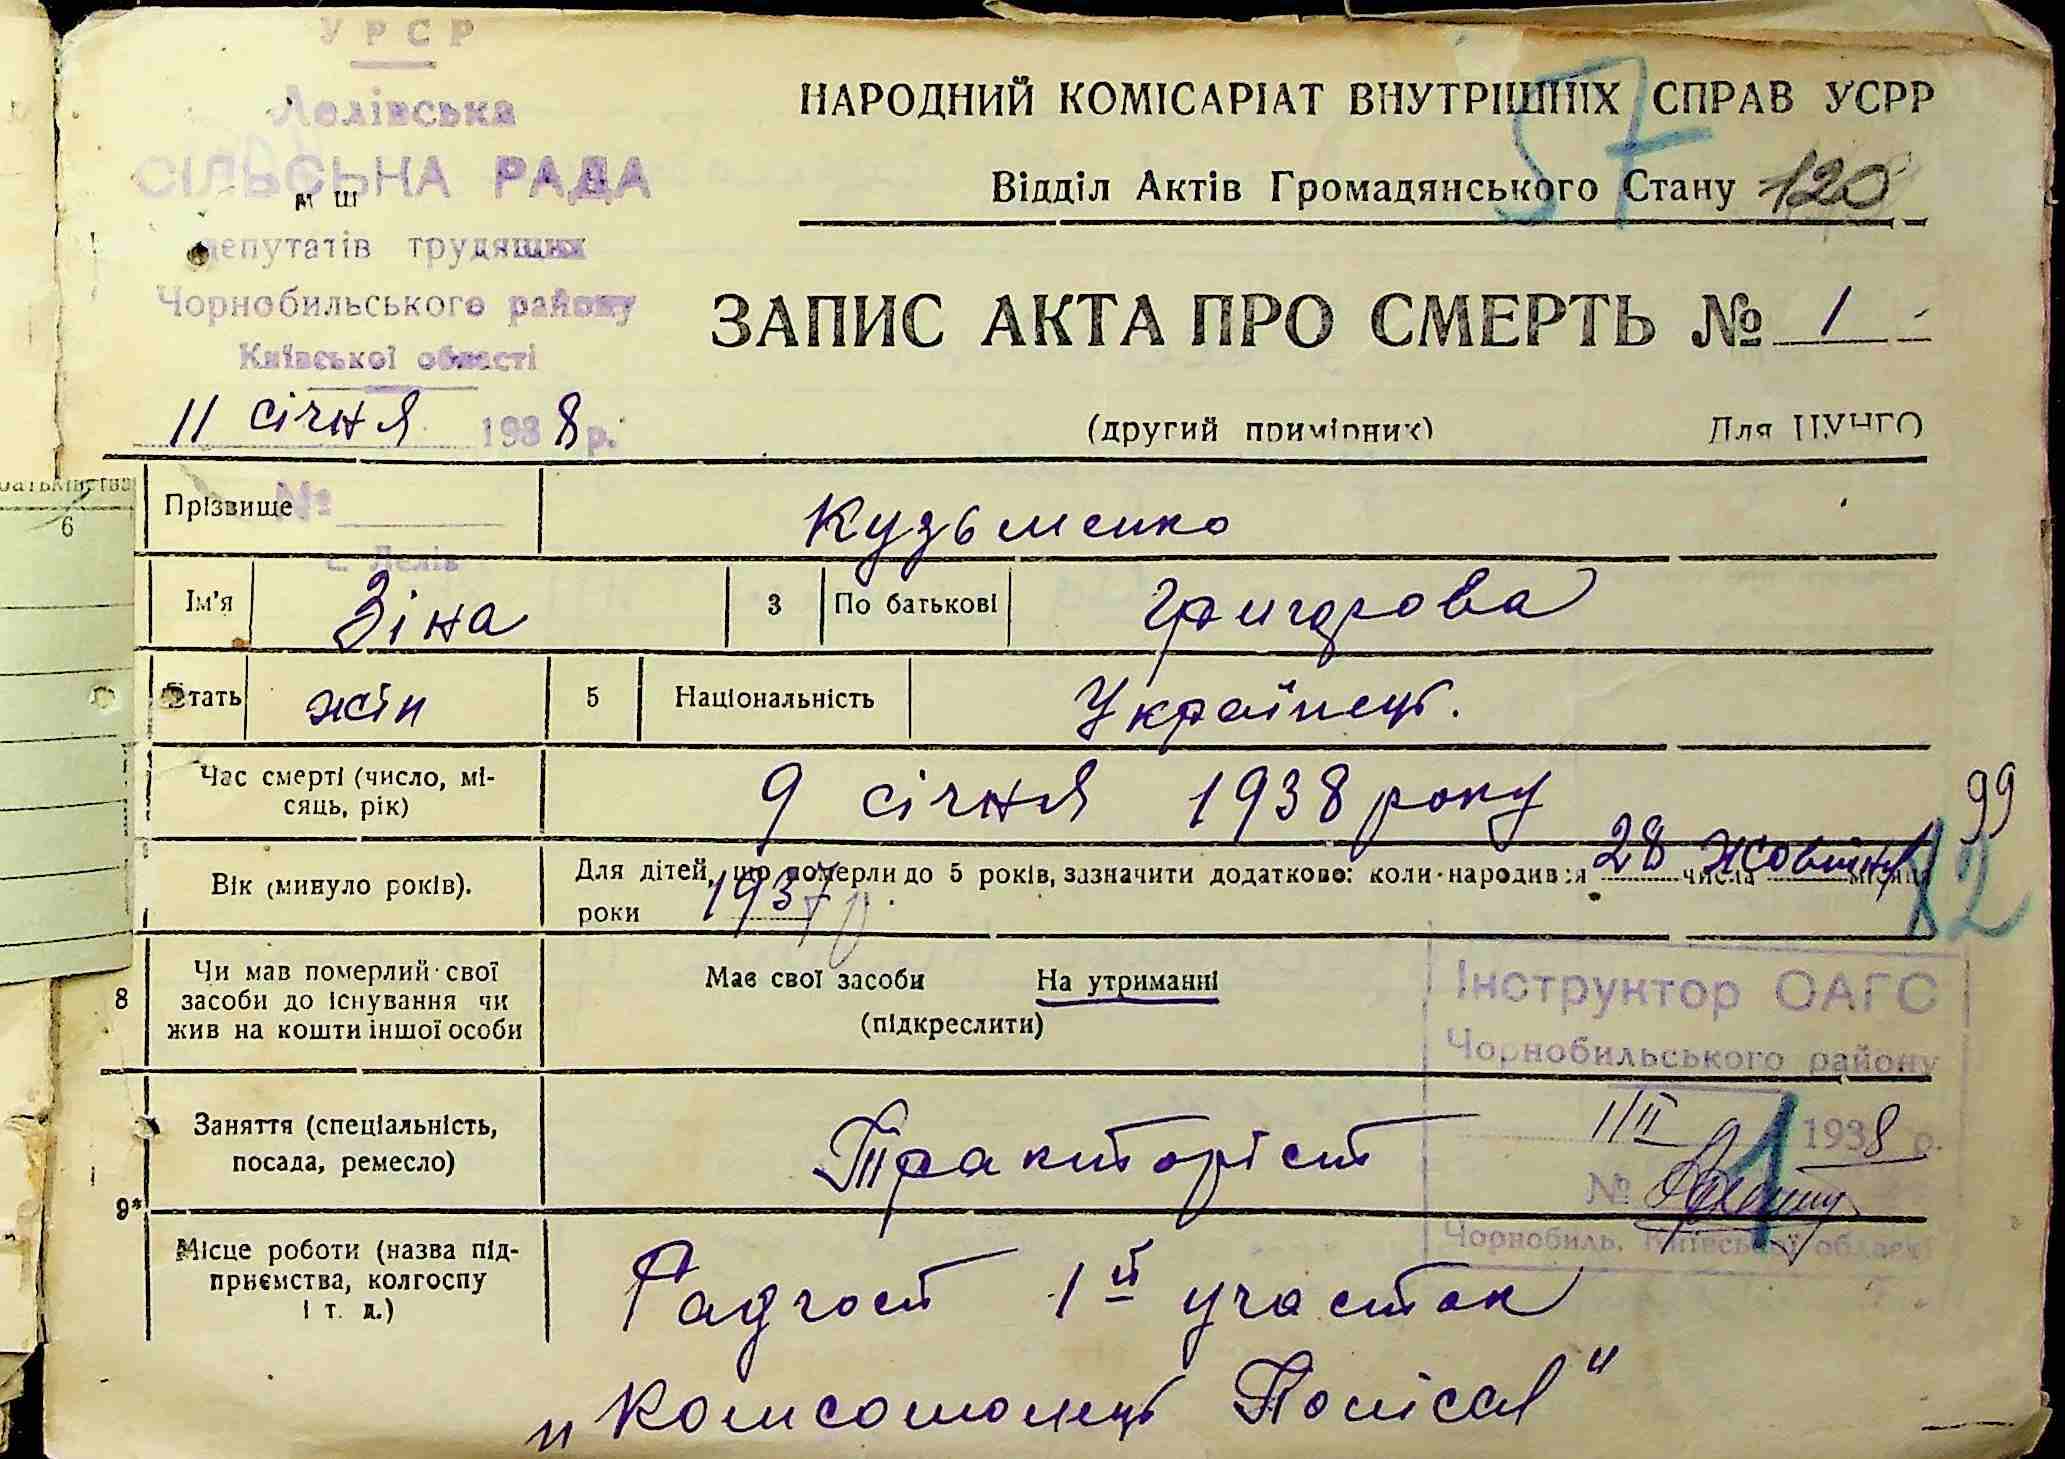 УРСР
Лелівська
СІЛЬСЬКА РАДА
депутатів трудящих
Чорнобильського району
Київської області
11 січня 1938 р.
№
с. Лелів
НАРОДНИЙ КОМІСАРІАТ ВНУТРІШНІХ СПРАВ УСРР
57
Відділ Актів Громадянського Стану 120
ЗАПИС АКТА ПРО СМЕРТЬ № 1
(другий примірник) Для ЦУНГО
6
Прізвище Кузьменко
Ім'я Зіна 3 По батькові Григорова
Стать жін 5 Національність Українець.
Час смерті (число, мі-
сяць, рік) 9 січня 1938 року
99
Вік (минуло років). Для дітей, що померли до 5 років, зазначити додатково: коли народився 28 числа жовтня місяця
роки 1937 р.
82
8 Чи мав померлий свої
засоби до існування чи
жив на кошти іншої особи
Мав свої засоби На утриманні
(підкреслити)
Інструктор ОАГС
Чорнобильського району
1/II 1938 р.
№
Чорнобиль, Київської області
9*
Заняття (спеціальність,
посада, ремесло) Тракторіст
1
Місце роботи (назва під-
приємства, колгоспу
і т. д.) Радгосп 1й участок
„Комсомолець Полісся"